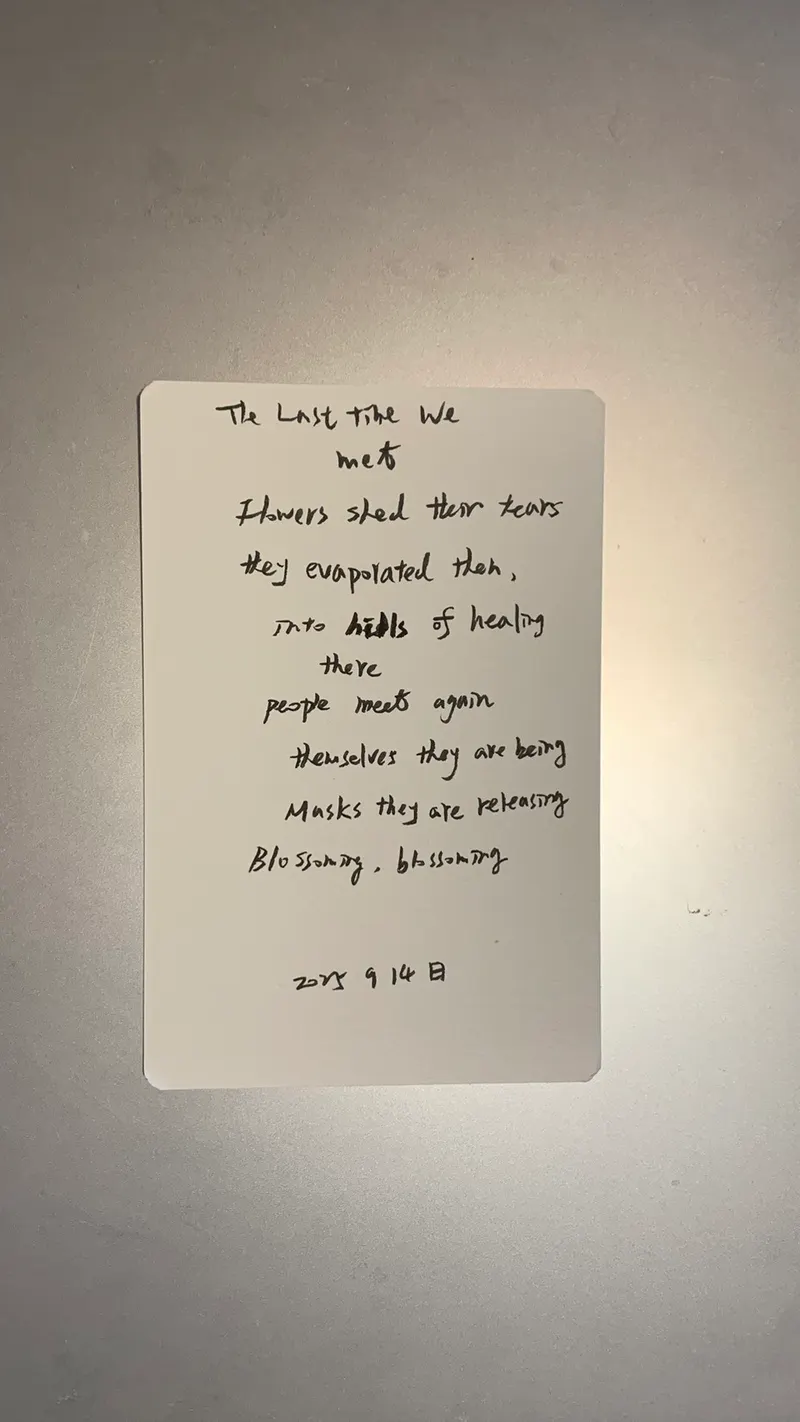 The Last time We
met
Flowers shed their tears
they evaporated then,
into hills of healing
there
people meet again
themselves they are being
Masks they are releasing
Blossoming, blossoming
2025 9 14 日